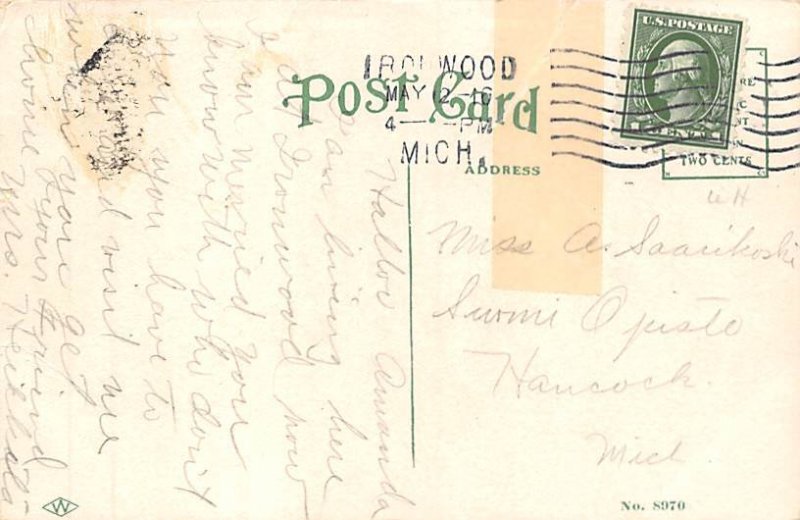 Post Card
IRONWOOD
MAY 12-16
4 — PM
MICH.
U.S. POSTAGE
TWO CENTS
ADDRESS
Miss A. Saarikoski
Suomi Opisto
Hancock.
Mich
Hallow Amanda
I am living here
at Ironwood now
I am married you
know with who don't
you you have to
and visit me
when you get
home your friend
Mrs. Heikkila
W
No. 8970